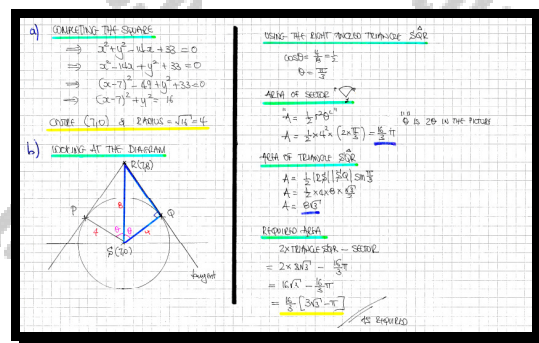 a) COMPLETING THE SQUARE
⇒ x² + y² - 14x + 33 = 0
⇒ x² - 14x + y² + 33 = 0
⇒ (x-7)² - 49 + y² + 33 = 0
⇒ (x-7)² + y² = 16
CENTRE (7,0) & RADIUS = √16 = 4
b) LOOKING AT THE DIAGRAM
R(7,8)
P
8
Q
4
θ
θ
4
S(7,0)
tangent
USING THE RIGHT ANGLED TRIANGLE SQR
cosθ = 4/8 = 1/2
θ = π/3
AREA OF SECTOR
"A = 1/2 r²θ"
A = 1/2 × 4² × (2×π/3) = 16/3 π
"θ" IS 2θ IN THE PICTURE
AREA OF TRIANGLE SQR
A = 1/2 |RS||SQ| sin π/3
A = 1/2 × 4 × 8 × √3/2
A = 8√3
REQUIRED AREA
2 × TRIANGLE SQR - SECTOR
= 2 × 8√3 - 16/3 π
= 16√3 - 16/3 π
= 16/3 [3√3 - π]
AS REQUIRED